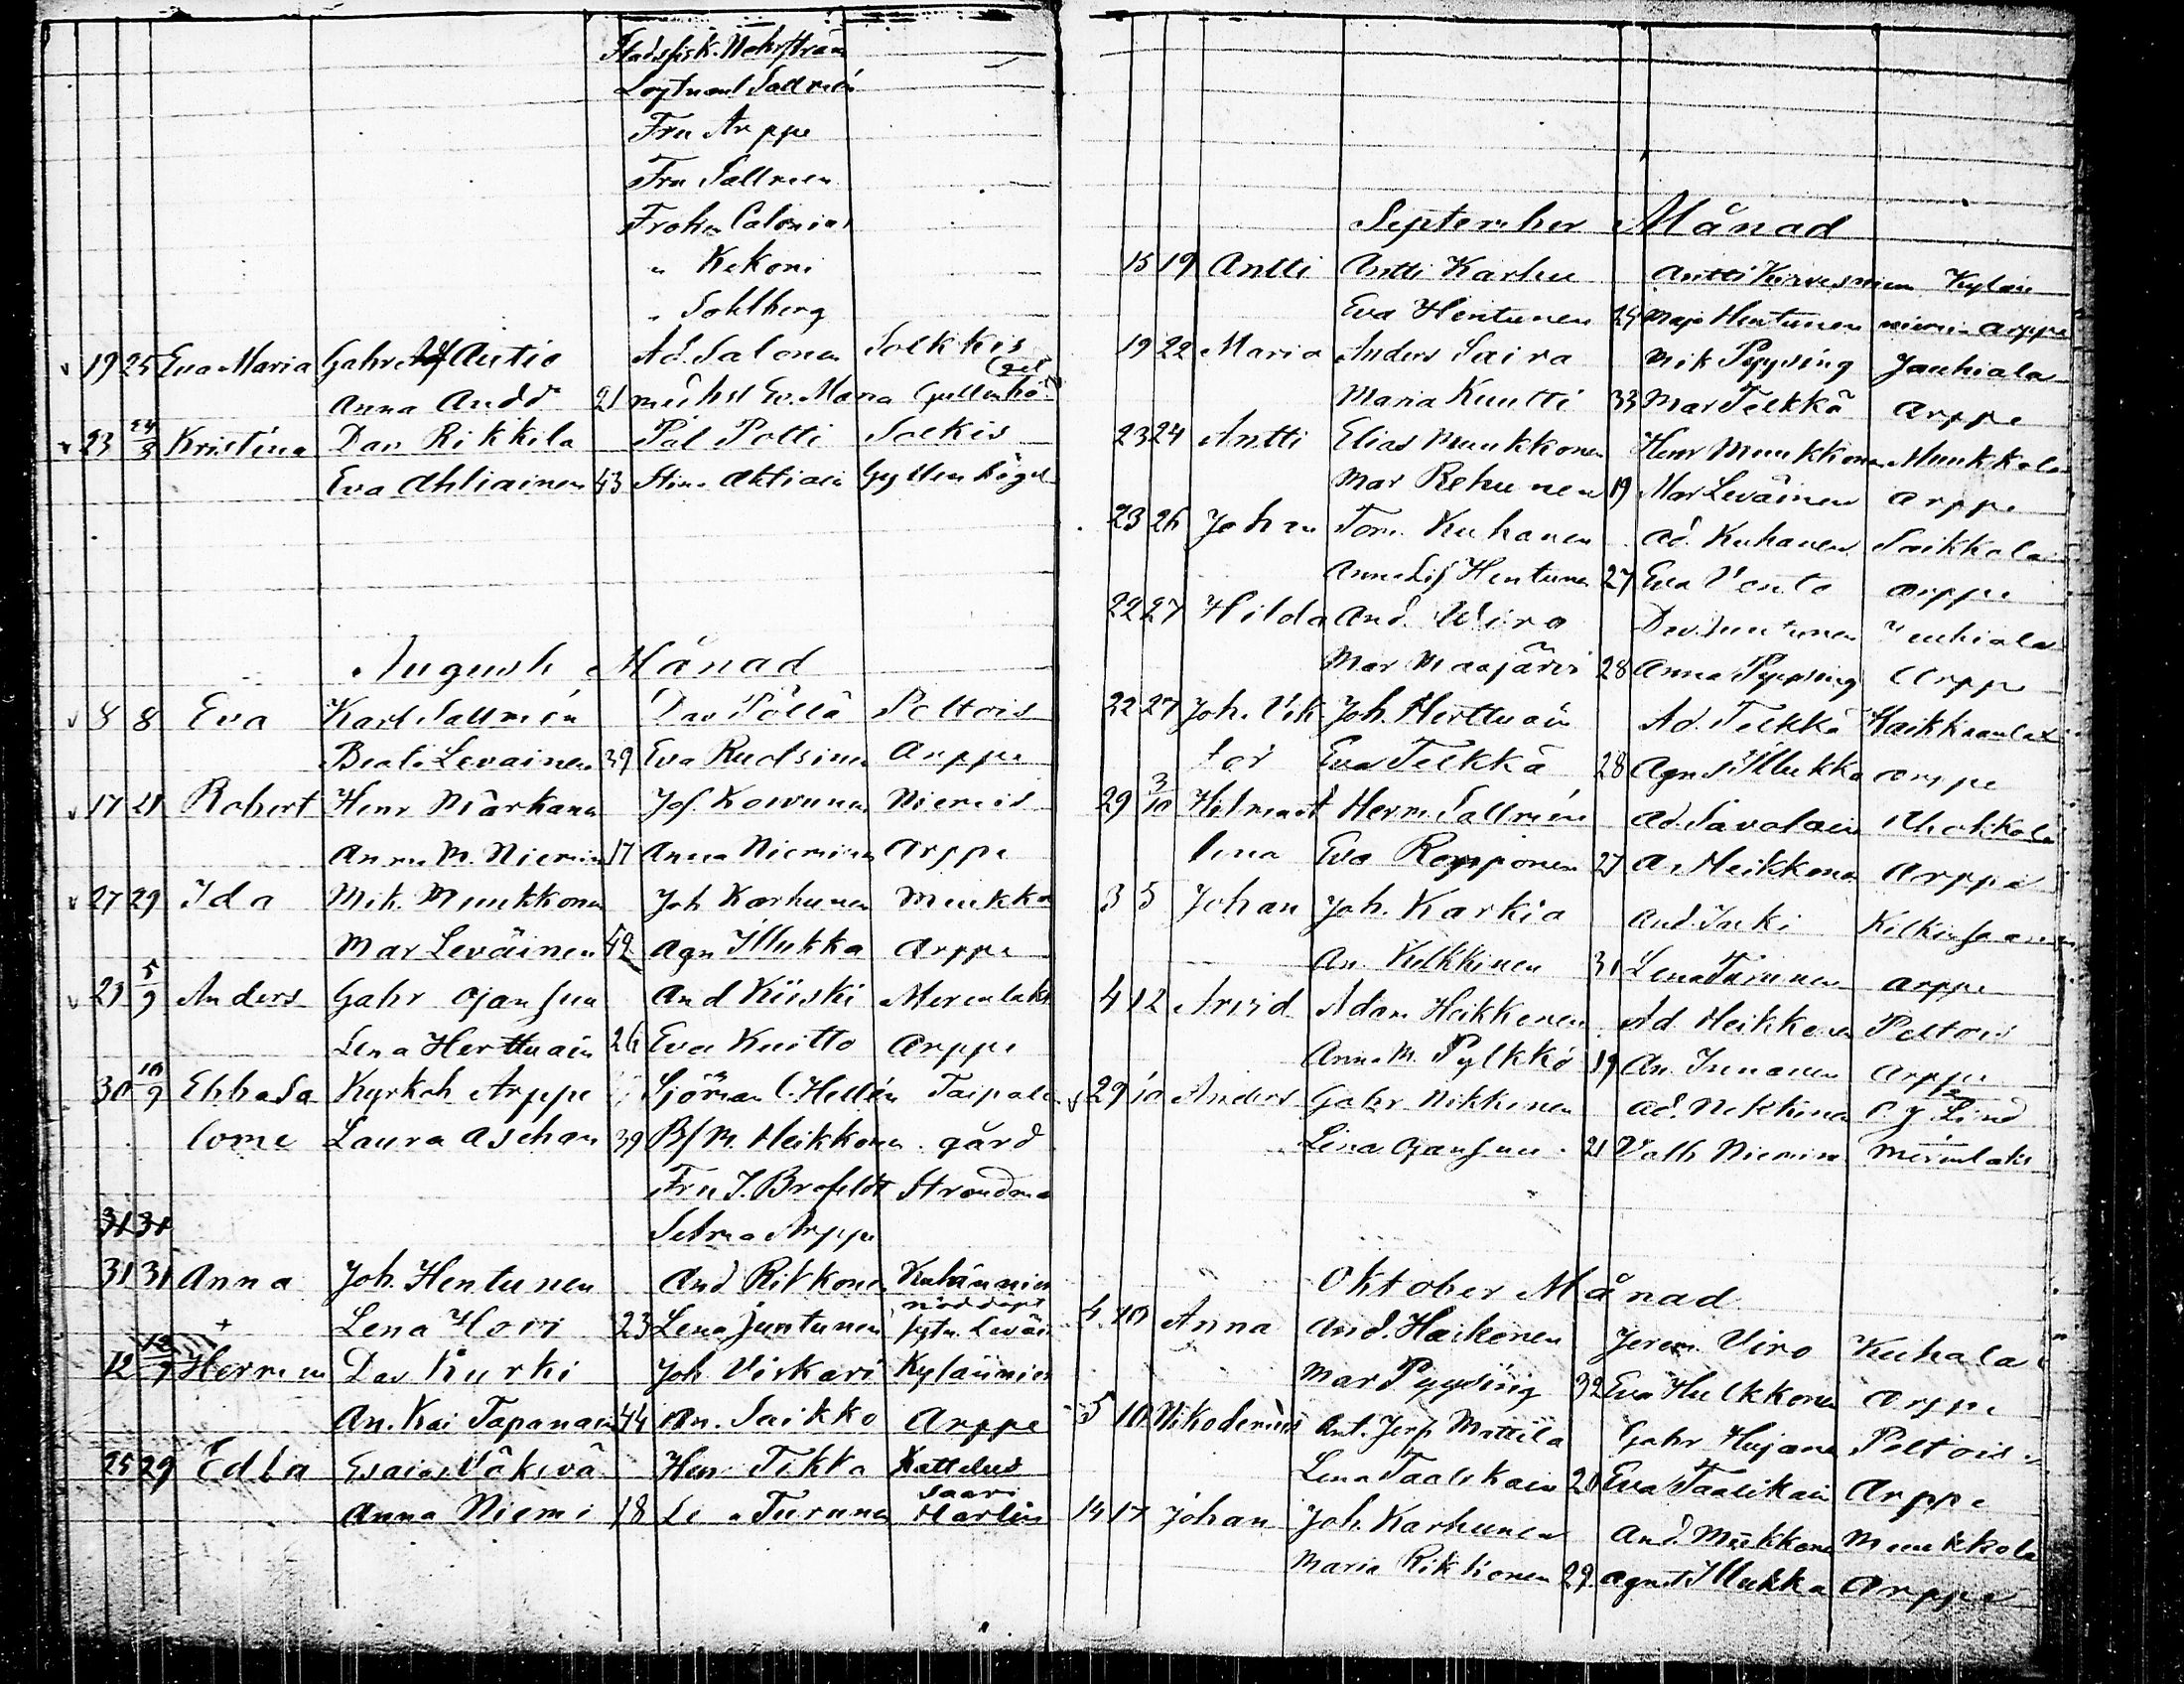 Stadsfisk. Wahrströms
Loytnant Sallmén
Fru Arppe
Fru Sallmen
Fröken Calonius
" Kekoni
" Sohlberg
v 19 25 Eva Maria Gabr Autio Ad. Salonen Solkkis
Anna Audd 21 Ev. Maria Gyllenhö
v 23 24/8 Kristina Dav Rikkila Pål Potti Solkis
Eva Ahliainen 43 Stina Ahliain Gyllenbögel
Augusti Månad
v 8 8 Eva Karl Sallmén Dav Pöllä Peltois
Beata Levainen 39 Eva Rudsinen Arppe
v 17 21 Robert Henr Märkanen Jos. Kowunen Niemis
Anna M. Nieminen 17 Anna Nieminen Arppe
v 27 29 Ida Mik. Muukkonen Joh Karhunen Muukko
Mar Leväinen 42 Agn Illukka Arppe
v 29 5/9 Anders Gabr Ojansuu And Kiiski Merenlaks
Lena Herttuain 26 Eva Kuitto Arppe
30 10/9 Ebba Sa Kyrkoh Arppe Sjöman C. Hellén Taipale
lome Laura Aschan 39 Bf M. Heikkonen gård
Fru I. Brofeldt Strandman
Selma Arppe
31 31
31 31 Anna Joh. Hentunen And Rikkonen
nöddöpt
+ Lena Hovi 23 Lena Juntunen Leväin
12 12/9 Herman Dav Kurki Joh Viskari Kylänniem
An. Kai Tapanain 44 An. Saikko Arppe
25 29 Edla Esaias Väkevä Henr Tikka Kattelus
saari
Anna Niemi 18 Le a Turunen Martin
September Månad
15 19 Antti Antti Karhu Antti Kirvesmien Kylän
Eva Hentunen 24 Maja Hentunen niemi Arppe
19 22 Maria Anders Saira Nik Pyysing Jauhiala
Maria Kuutti 33 Mar Telkkä Arppe
23 24 Antti Elias Muukkonen Henr Muukkonen Muukkola
Mar Rehunen 19 Mar Leväinen Arppe
23 26 Johan Tom. Kuhanen Ad. Kuhanen Saikkola
Anna Lis Hentunen 27 Eva Vento Arppe
22 27 Hilda And. Wiro Dav. Juntunen Jauhiala
Mar Maajärvi 28 Anna Pyysing Arppe
22 27 Joh. Vik Joh. Herttuain Ad. Telkkä Haikkaanlax
tor Eva Telkkä 28 Agnes Illukka Arppe
29 3/10 Helmast Herm. Sallmén Ad. Savolain
iina Eva Repponen 27 A. Heikkonen Arppe
3 5 Johan Joh. Karkia And. Inki Kilkinsaaren
An. Kulkkinen 31 Lena Turunen Arppe
4 12 Arvid Adam Heikkonen Ad Heikkonen Peltois
Anna M. Pylkkö 19 An. Innanen Arppe
v 29 10 Anders Gabr Nikkinen Ad. Nikkinen P. J. Lind
Lena Ojansuu 21 Valb Nieminen Merenlaks
Oktober Månad
4 10 Anna And. Heikonen Jerem. Viro Kuhala
Mar Pyysing 32 Eva Hulkkonen Arppe
5 10 Nikodemus Ant. Jerf Mattila Gabr Hujanen Peltois
Lena Taalikain 20 Eva Taalikain Arppe
14 17 Johan Joh. Karhunen And. Mukkonen Muukkola
Maria Rikkonen 29 Agnes Illukka Arppe